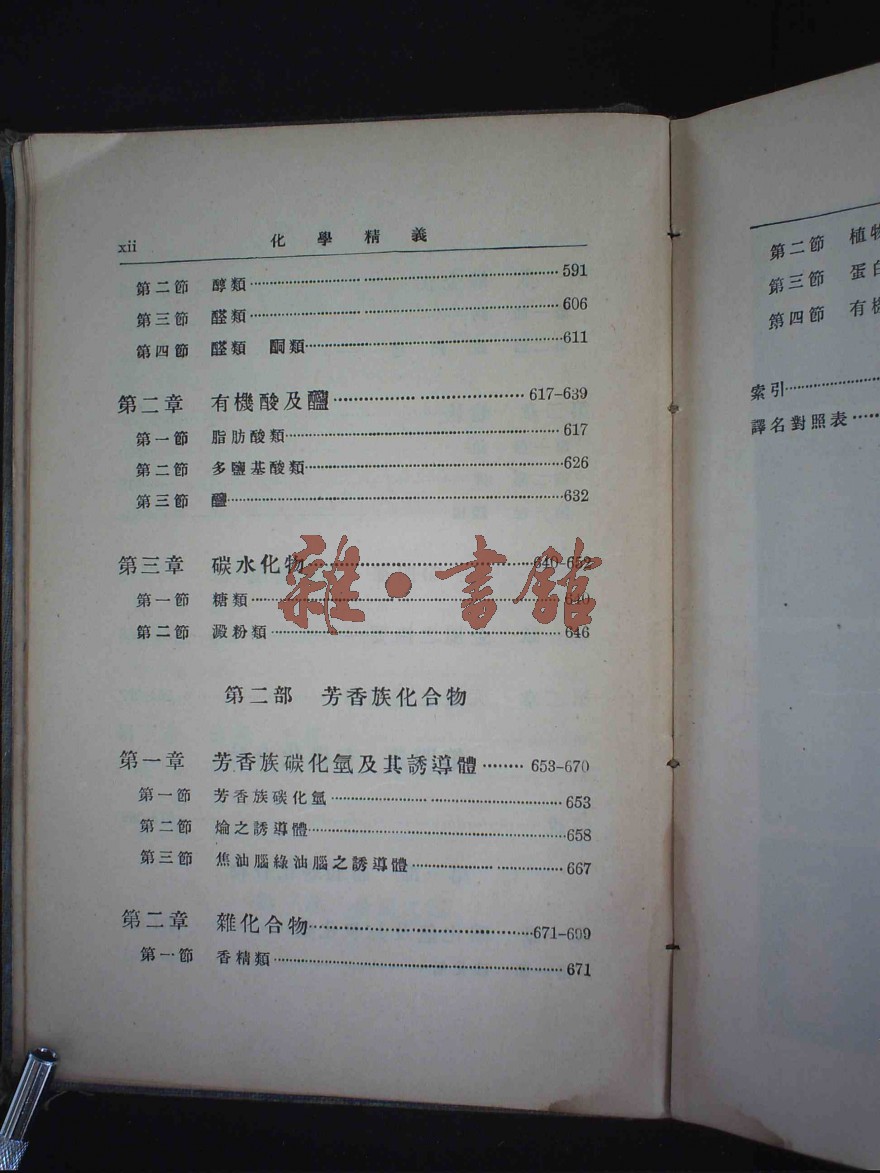 xii 化學精義
第二節 醇類 591
第三節 醛類 606
第四節 醛類 酮類 611
第二章 有機酸及 617-639
第一節 脂肪酸類 617
第二節 多鹽基酸類 626
第三節 632
第三章 碳水化物 640-652
第一節 糖類 640
第二節 澱粉類 646
雜·書館
第二部 芳香族化合物
第一章 芳香族碳化氫及其誘導體 653-670
第一節 芳香族碳化氫 653
第二節 之誘導體 658
第三節 焦油腦綠油腦之誘導體 667
第二章 雜化合物 671-699
第一節 香精類 671
第二節 植物
第三節 蛋白
第四節 有機
索引
譯名對照表